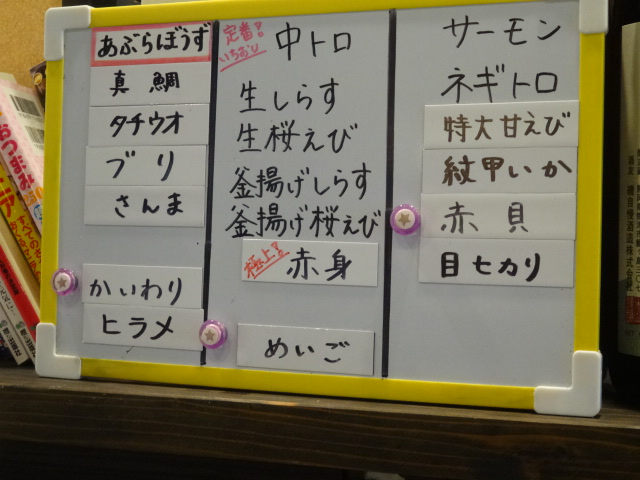 あぶらぼうず
真鯛
タチウオ
ブリ
さんま
かいわり
ヒラメ
定番!
いちおし
中トロ
生しらす
生桜えび
釜揚げしらす
釜揚げ桜えび
極上!
赤身
めいご
サーモン
ネギトロ
特大甘えび
紋甲いか
赤貝
目ヒカリ